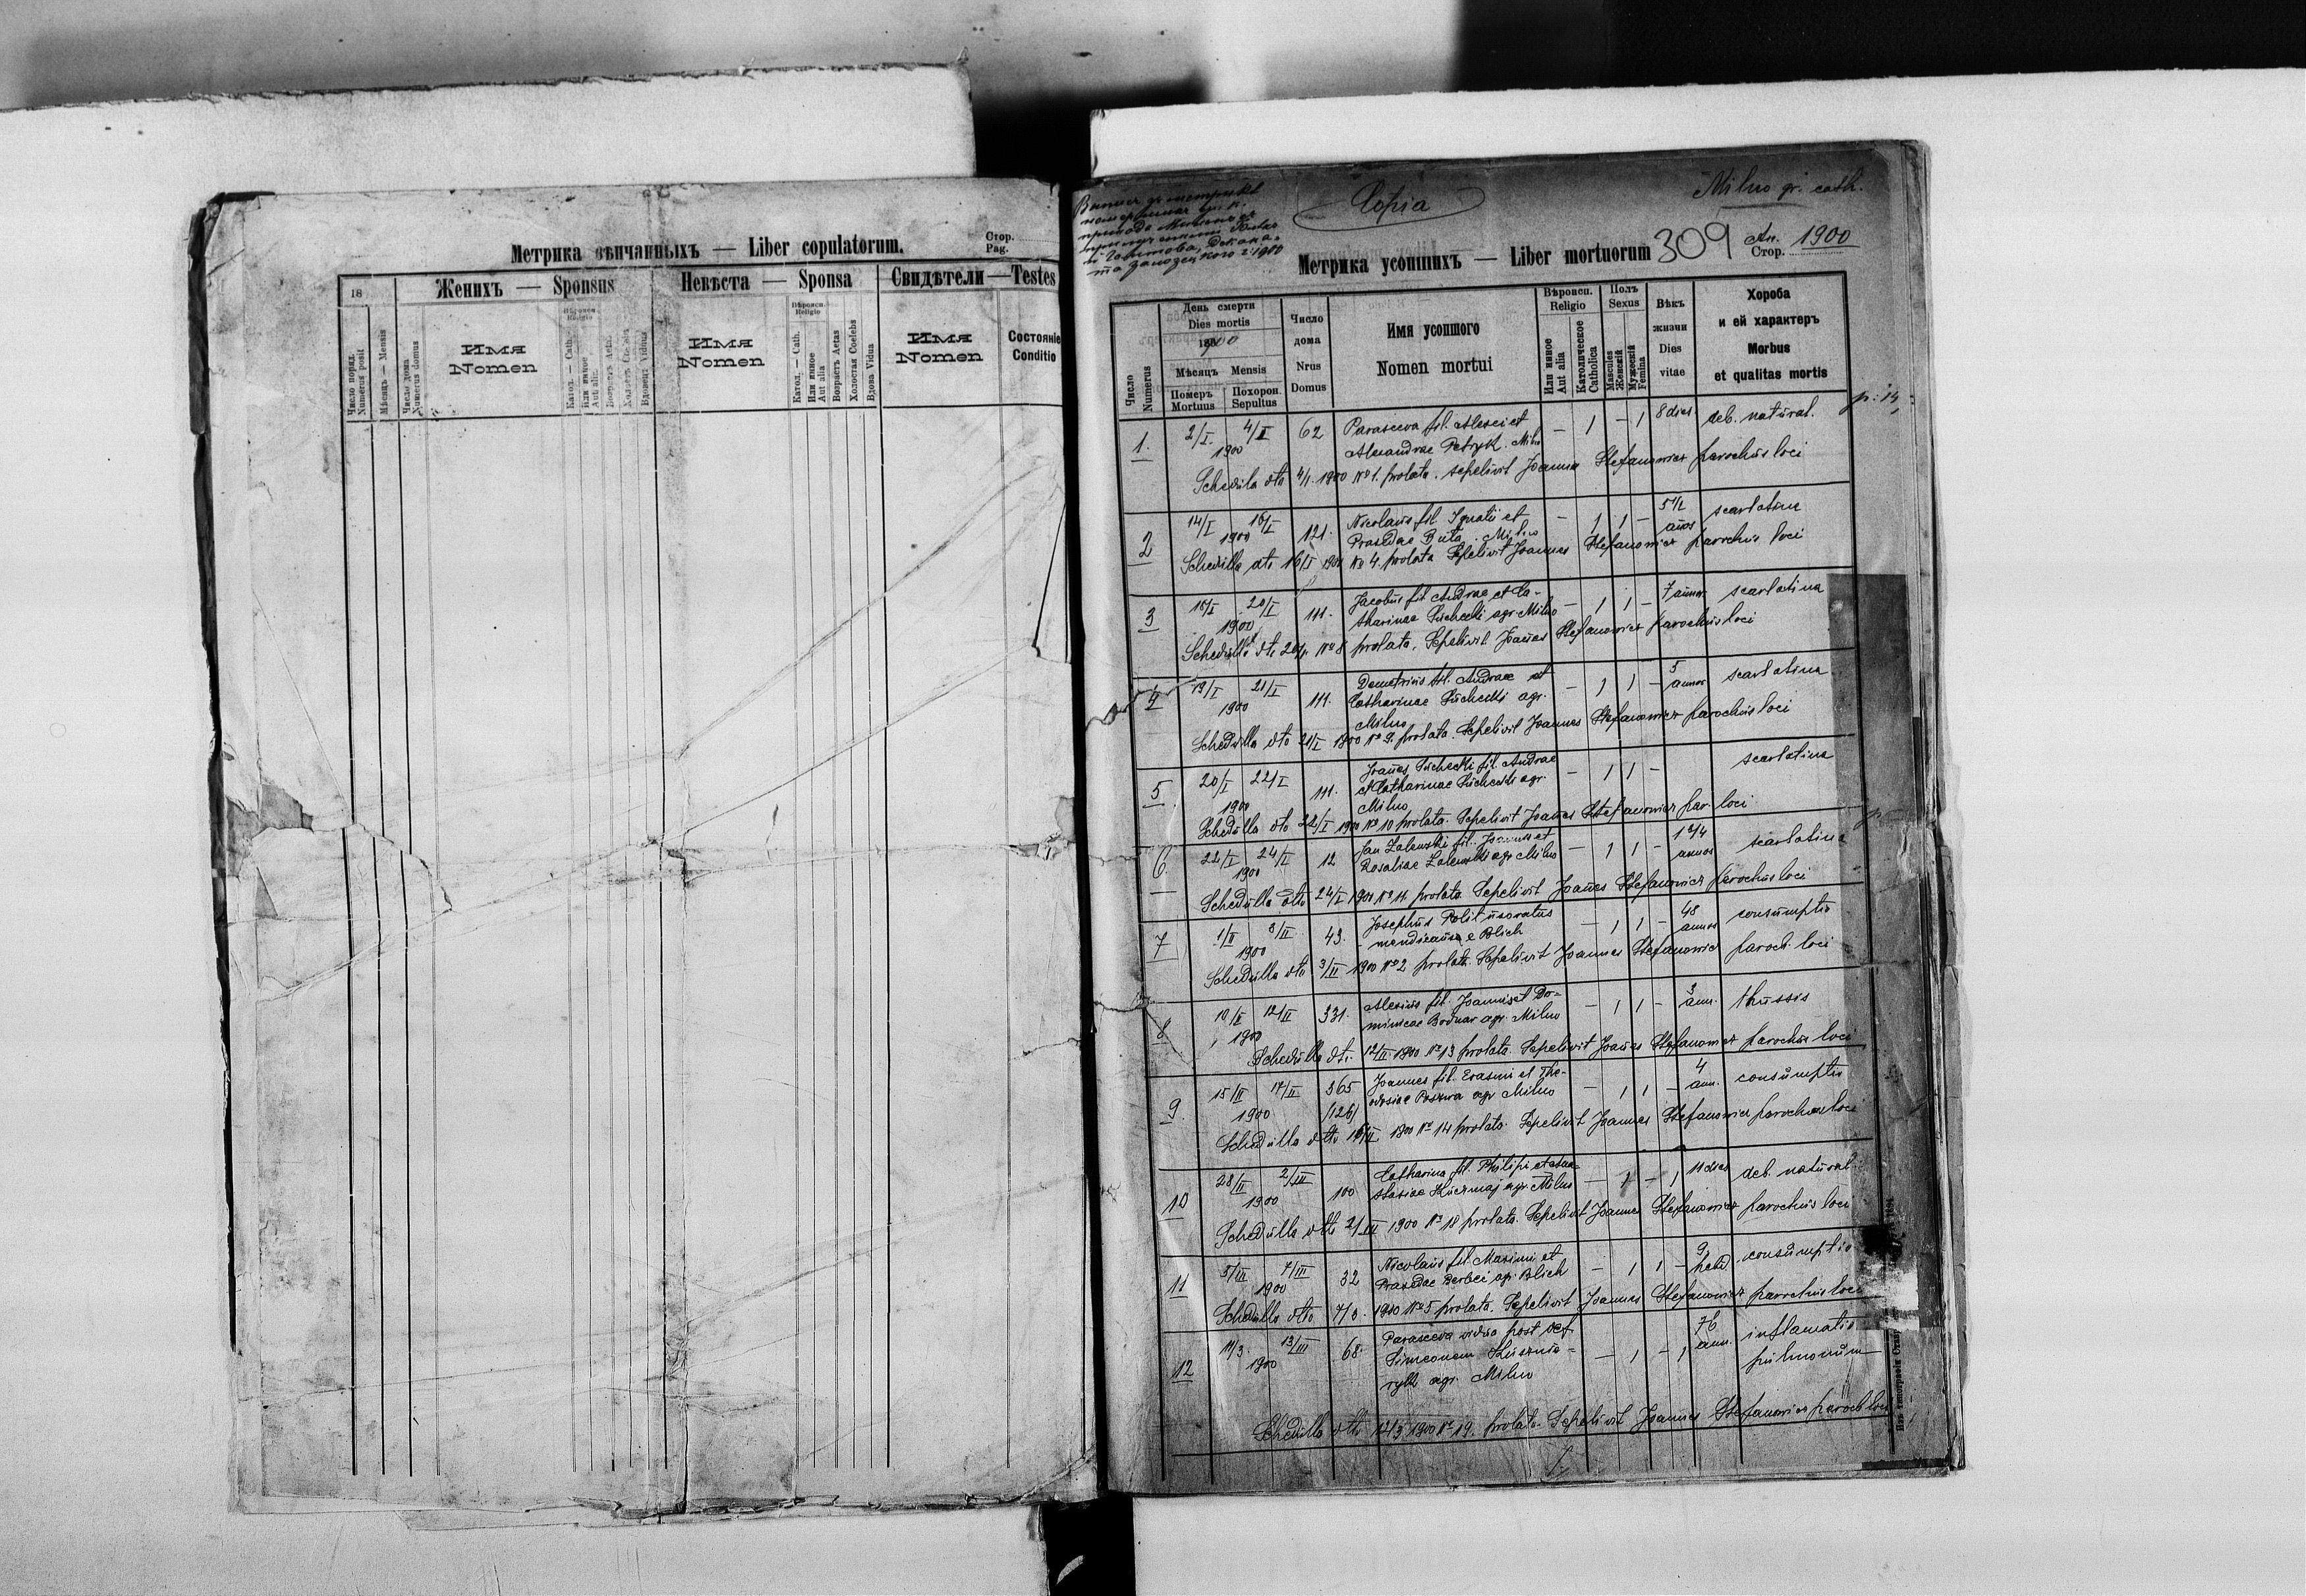 Метрика вѣнчанныхъ — Liber copulatorum.
Стор.
Pag.
18
Женихъ — Sponsus
Невѣста — Sponsa
Свидѣтели — Testes
Число поряд.
Numerus posit
Мѣсяцъ — Mensis
Число дома
Numerus domus
Имя
Nomen
Вѣроисп.
Religio
Катол. — Cath.
Или иное
Aut alia
Имя
Nomen
Вѣроисп.
Religio
Катол. — Cath.
Или иное
Aut alia
Возрастъ Aetas
Холостая Coelebs
Вдова Vidua
Имя
Nomen
Состояніе
Conditio
Copia
Milno gr. cath.
Метрика усопшихъ — Liber mortuorum 309
An. 1900
Стор.
Число
Numerus
День смерти
Dies mortis
1900
Мѣсяцъ Mensis
Померъ
Mortuus
Похорон.
Sepultus
Число
дома
Nrus
Domus
Имя усопшого
Nomen mortui
Вѣроисп.
Religio
Или инное
Aut alia
Католическое
Catholica
Полъ
Sexus
Masculus
Женскій
Мужескій
Femina
Вѣкъ
жизни
Dies
vitae
Хороба
и ей характеръ
Morbus
et qualitas mortis
1. 2/I 4/I 1900 62 Parasceva fil. Alexei et
Alexandrae Petryk. Milno — 1 — 1 8 dies deb. natural.
Schedula dto 4/1 1900 No 1. prolata. sepelivit Joannes Stefanowicz parochus loci
2 14/I 16/I 1900 121. Nicolaus fil. Ignatii et
Praxedae Buta. Milno — 1 1 — 5 1/2 anos scarlatina
Schedulla dto 16/I 1900 No 4. prolata Sepelivit Joannes Stefanowicz parochus loci
3 18/I 20/I 1900 111. Jacobus fil Andrae et Ca-
tharinae Suchecki agr. Milno — 1 1 — 7 annor scarlatina
Schedulla dto 20/1 No 8 prolata. Sepelivit Joanes Stefanowicz parochus loci
4 19/I 21/I 1900 111. Demetrius fil. Andrae et
Catharinae Suchecki agr.
Milno — 1 1 — 5 annor scarlatina
Schedulla dto 21/I 1900 No 9. prolata. Sepelivit Joannes Stefanowicz parochus loci
5 20/I 22/I 1900 111. Joanes Suchecki fil. Andrae
et Catharinae Suchecki agr.
Milno — 1 1 — scarlatina
Schedulla dto 22/I 1900 No 10 prolata. Sepelivit Joanes Stefanowicz par. loci
6. 22/I 24/I 1900 12 Jan Zalewski fil. Joannis et
Rosaliae Zalewski agr Milno — 1 1 — annos scarlatina
Schedulla dto 24/I 1900 No 11 prolata. Sepelivit Joanes Stefanowicz parochus loci
7 1/II 3/II 1900 43. Josephus Polit uxoratus
mendicans e Blich — 1 1 — 48 annos consumptio
Schedulla dto 3/II 1900 No 2 prolata. Sepelivit Joannes Stefanowicz paroch. loci
8 10/II 12/II 1900 331. Alexius fil. Joannis et Do-
minicae Bodnar agr. Milno — 1 1 — 3 ann. thussis
Schedulla dto. 12/II 1900 No 13 prolata. Sepelivit Joanes Stefanowicz parochus loci
9. 15/II 17/II 1900 365 /126/ Joannes fil. Erasmi et The-
odosiae agr Milno — 1 1 — 4 ann. consumptio
Schedulla dtto 16/II 1900 No 14 prolata. Sepelivit Joannes Stefanowicz parochus loci
10 28/II 2/III 1900 100 Catharina fil. Philipi et Ana-
stasiae agr. Milno — 1 — 1 11 dies deb. natural.
Schedulla dtto 2/III 1900 No 18 prolata. Sepelivit Joannes Stefanowicz parochus loci
11 5/III 7/III 1900 32 Nicolaus fil Maximi et
Praxedae agr. Blich — 1 1 — 9 hebd consumptio
Schedulla dto 7/3. 1900 No 5 prolata. Sepelivit Joannes Stefanowicz parochus loci
12 11/3. 13/III 1900 68. Parasceva vidua post def.
Simeonem
agr. Milno — 1 — 1 76 ann. inflamatio
pulmonum
Schedulla dtto 12/3 1900 No 19. prolata. Sepelivit Joannes Stefanowicz paroch loci